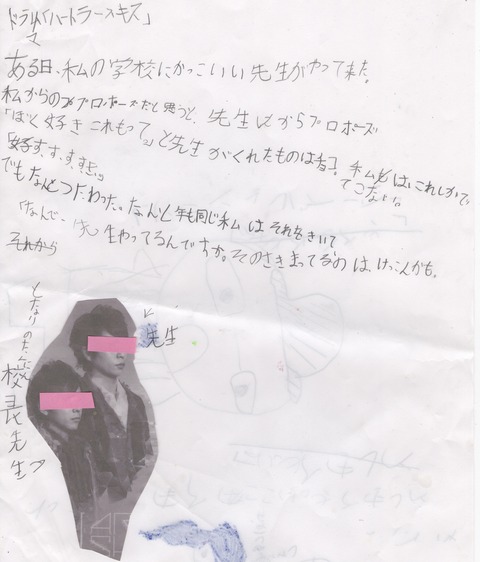 ドラマ「ハートラースキス」
ある日、私の学校にかっこいい先生がやって来た。
私からのプロポーズだと思うと、先生からプロポーズ
「ぼく好きこれもって。」と先生がくれたものは
はこれしかでてこない。
「好す、す、す、す
でもなんとつたわった。なんと年も同じ私はそれをきいて
「なんで、先生やってるんですか。そのさきまってるのは、けっこんかも。
それから
先生
となりの
校長先生